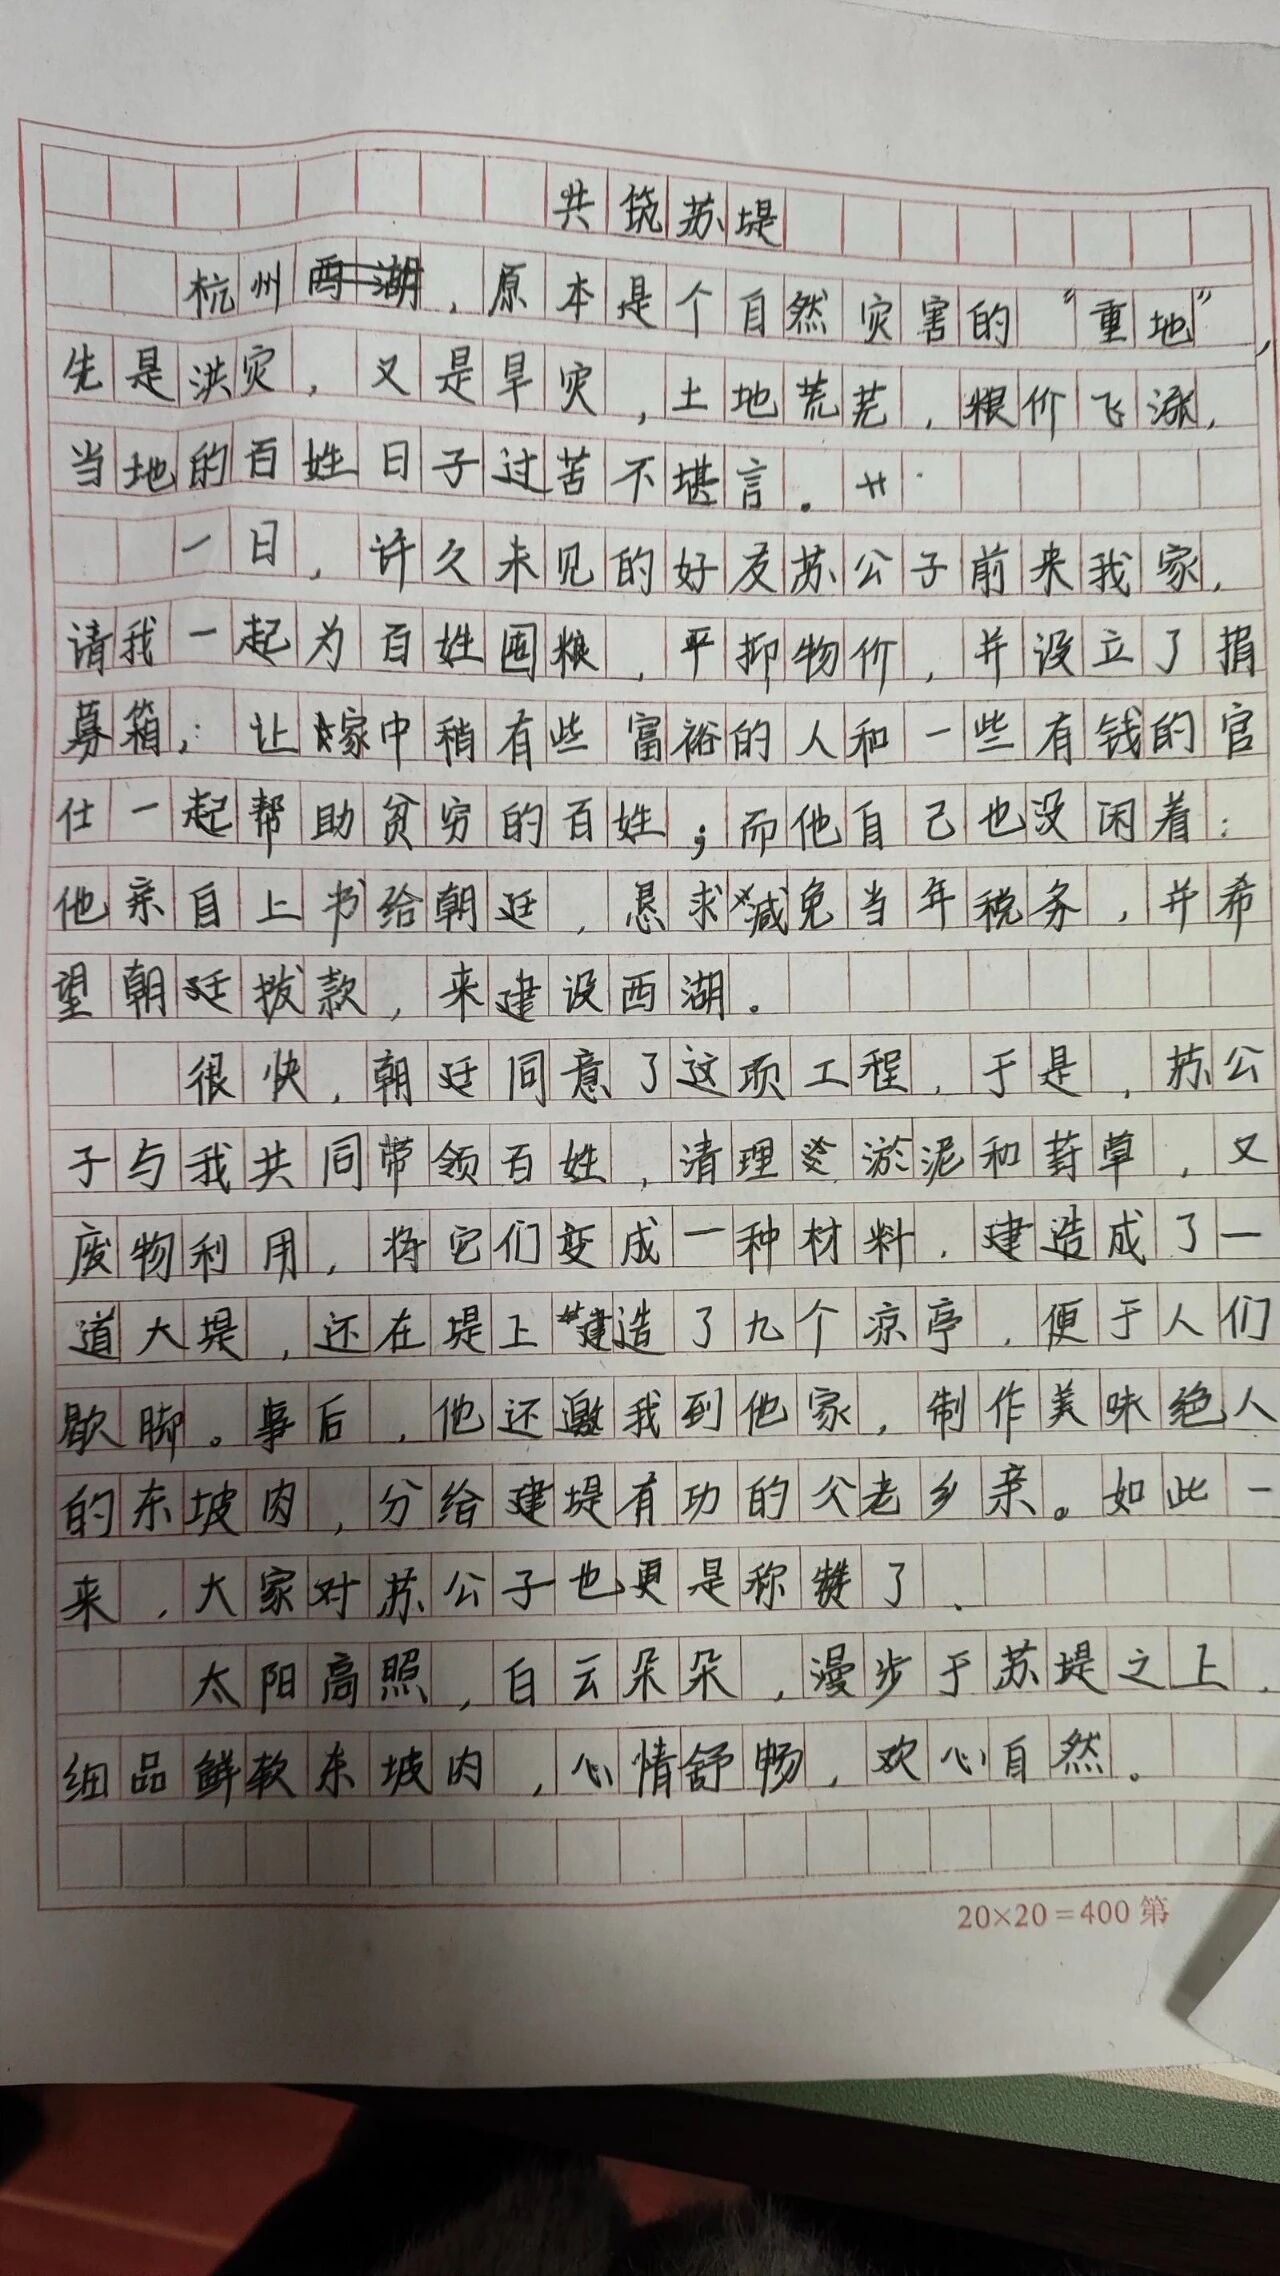 共筑苏堤
杭州，原本是个自然灾害的“重地”，
先是洪灾，又是旱灾，土地荒芜，粮价飞涨，
当地的百姓日子过苦不堪言。
一日，许久未见的好友苏公子前来我家，
请我一起为百姓囤粮，平抑物价，并设立了捐
募箱，让家中稍有些富裕的人和一些有钱的官
仕一起帮助贫穷的百姓；而他自己也没闲着：
他亲自上书给朝廷，恳求减免当年税务，并希
望朝廷拨款，来建设西湖。
很快，朝廷同意了这项工程，于是，苏公
子与我共同带领百姓，清理淤泥和葑草，又
废物利用，将它们变成一种材料，建造成了一
道大堤，还在堤上建造了九个凉亭，便于人们
歇脚。事后，他还邀我到他家，制作美味绝人
的东坡肉，分给建堤有功的父老乡亲。如此一
来，大家对苏公子也更是称赞了．
太阳高照，白云朵朵，漫步于苏堤之上，
细品鲜软东坡肉，心情舒畅，欢心自然。
20×20=400 第